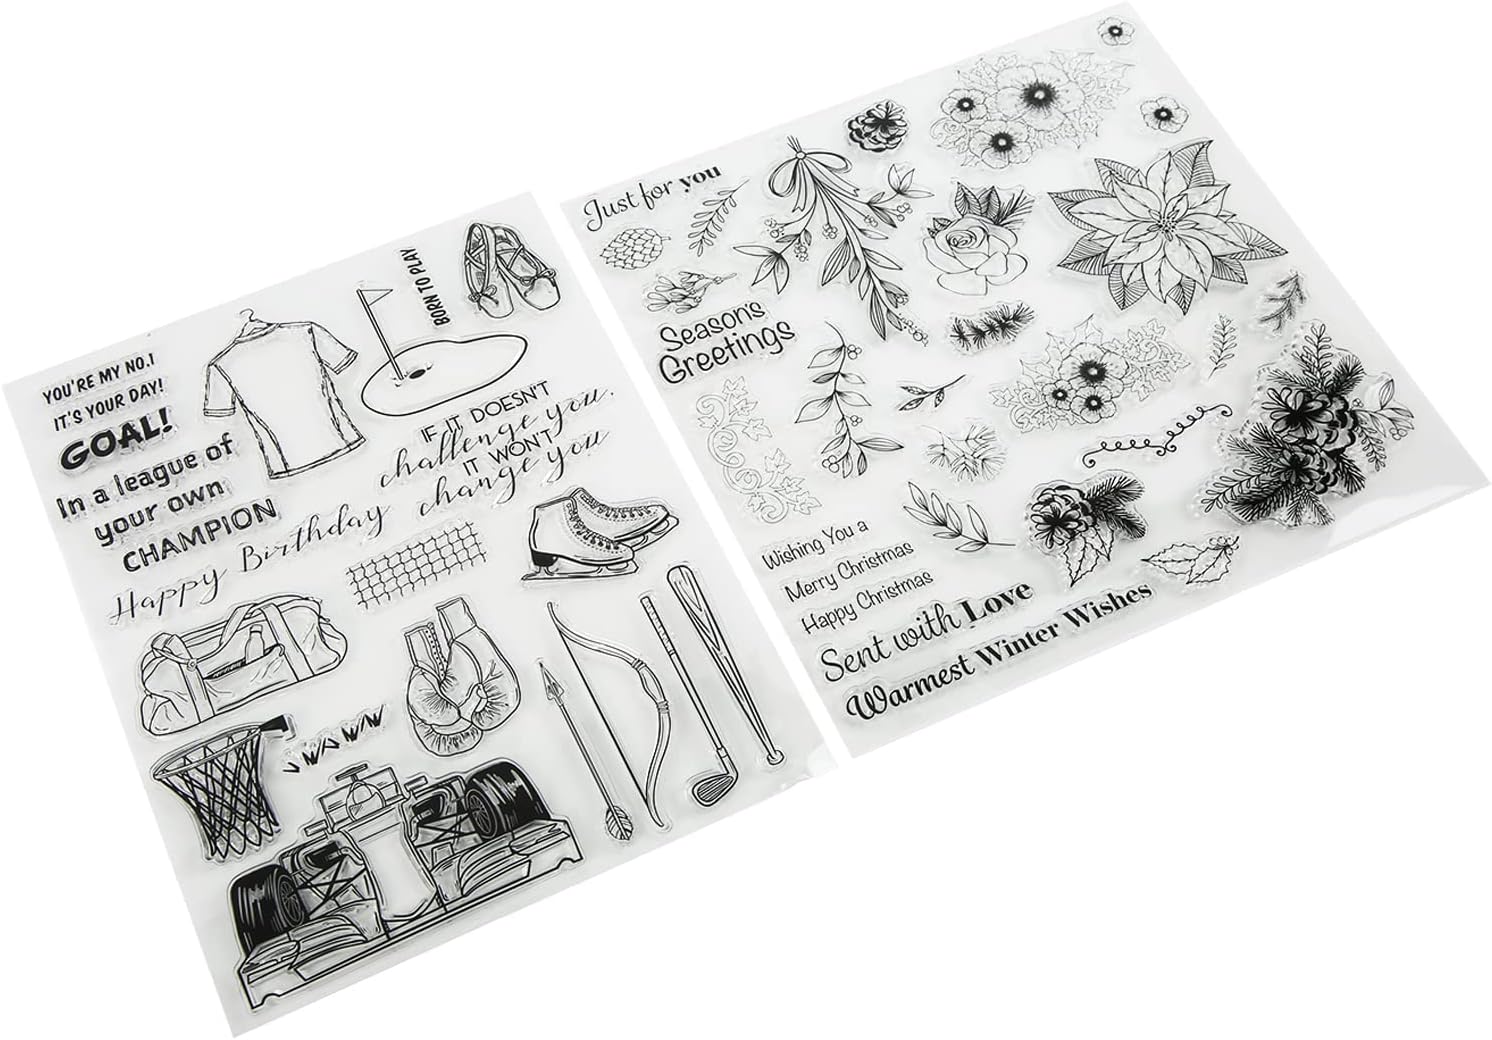 YOU'RE MY NO.1
IT'S YOUR DAY!
GOAL!
In a league of
your own
CHAMPION
Happy Birthday
BORN TO PLAY
IF IT DOESN'T
challenge you,
IT WON'T
change you
Just for you
Season's
Greetings
Wishing You a
Merry Christmas
Happy Christmas
Sent with Love
Warmest Winter Wishes